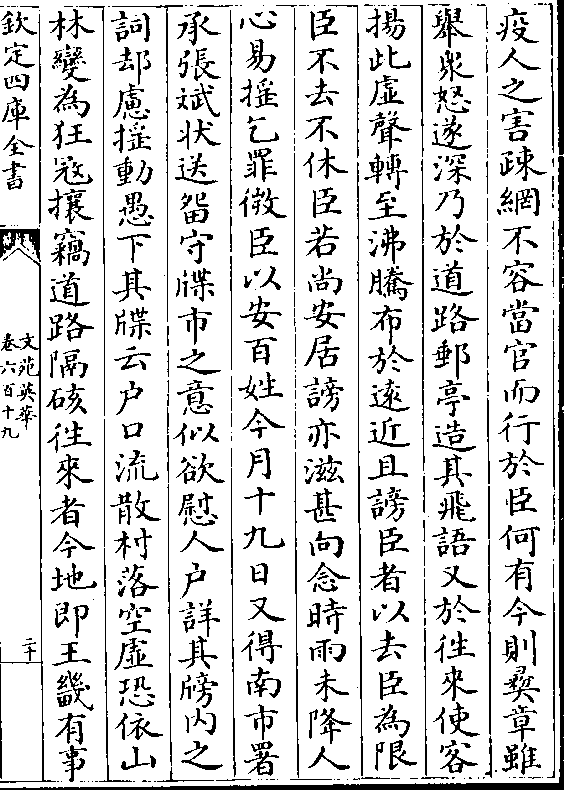 疫人之害疎網不容當官而行於臣何有今則彛章雖
舉衆怒遂深乃於道路郵亭造其飛語又於徃來使客
揚此虚聲轉至沸騰布於遠近且謗臣者以去臣為限
臣不去不休臣若尚安居謗亦滋甚向念時雨未降人
心易揺乞罪微臣以安百姓今月十九日又得南市署
承張斌状送留守牒市之意似欲慰人户詳其牓内之
詞却慮揺動愚下其牒云户口流散村落空虚恐依山
林變為狂宼攘竊道路隔硋徃來者今地即王畿有事
欽定四庫全書
文苑英華
卷六百十九
二十